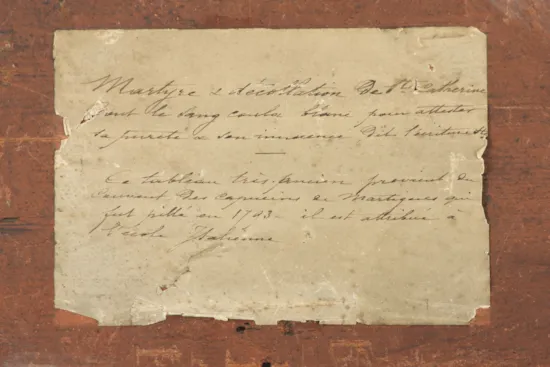 Martyre & décollation De Ste Catherine
dont le sang coula blanc pour attester
sa pureté & son innocence Dit l'écriture Ste
Ce tableau très-ancien provient du
Couvent des capucins de Martigues qui
fut pillé en 1793 il est attribué à
l'école Italienne